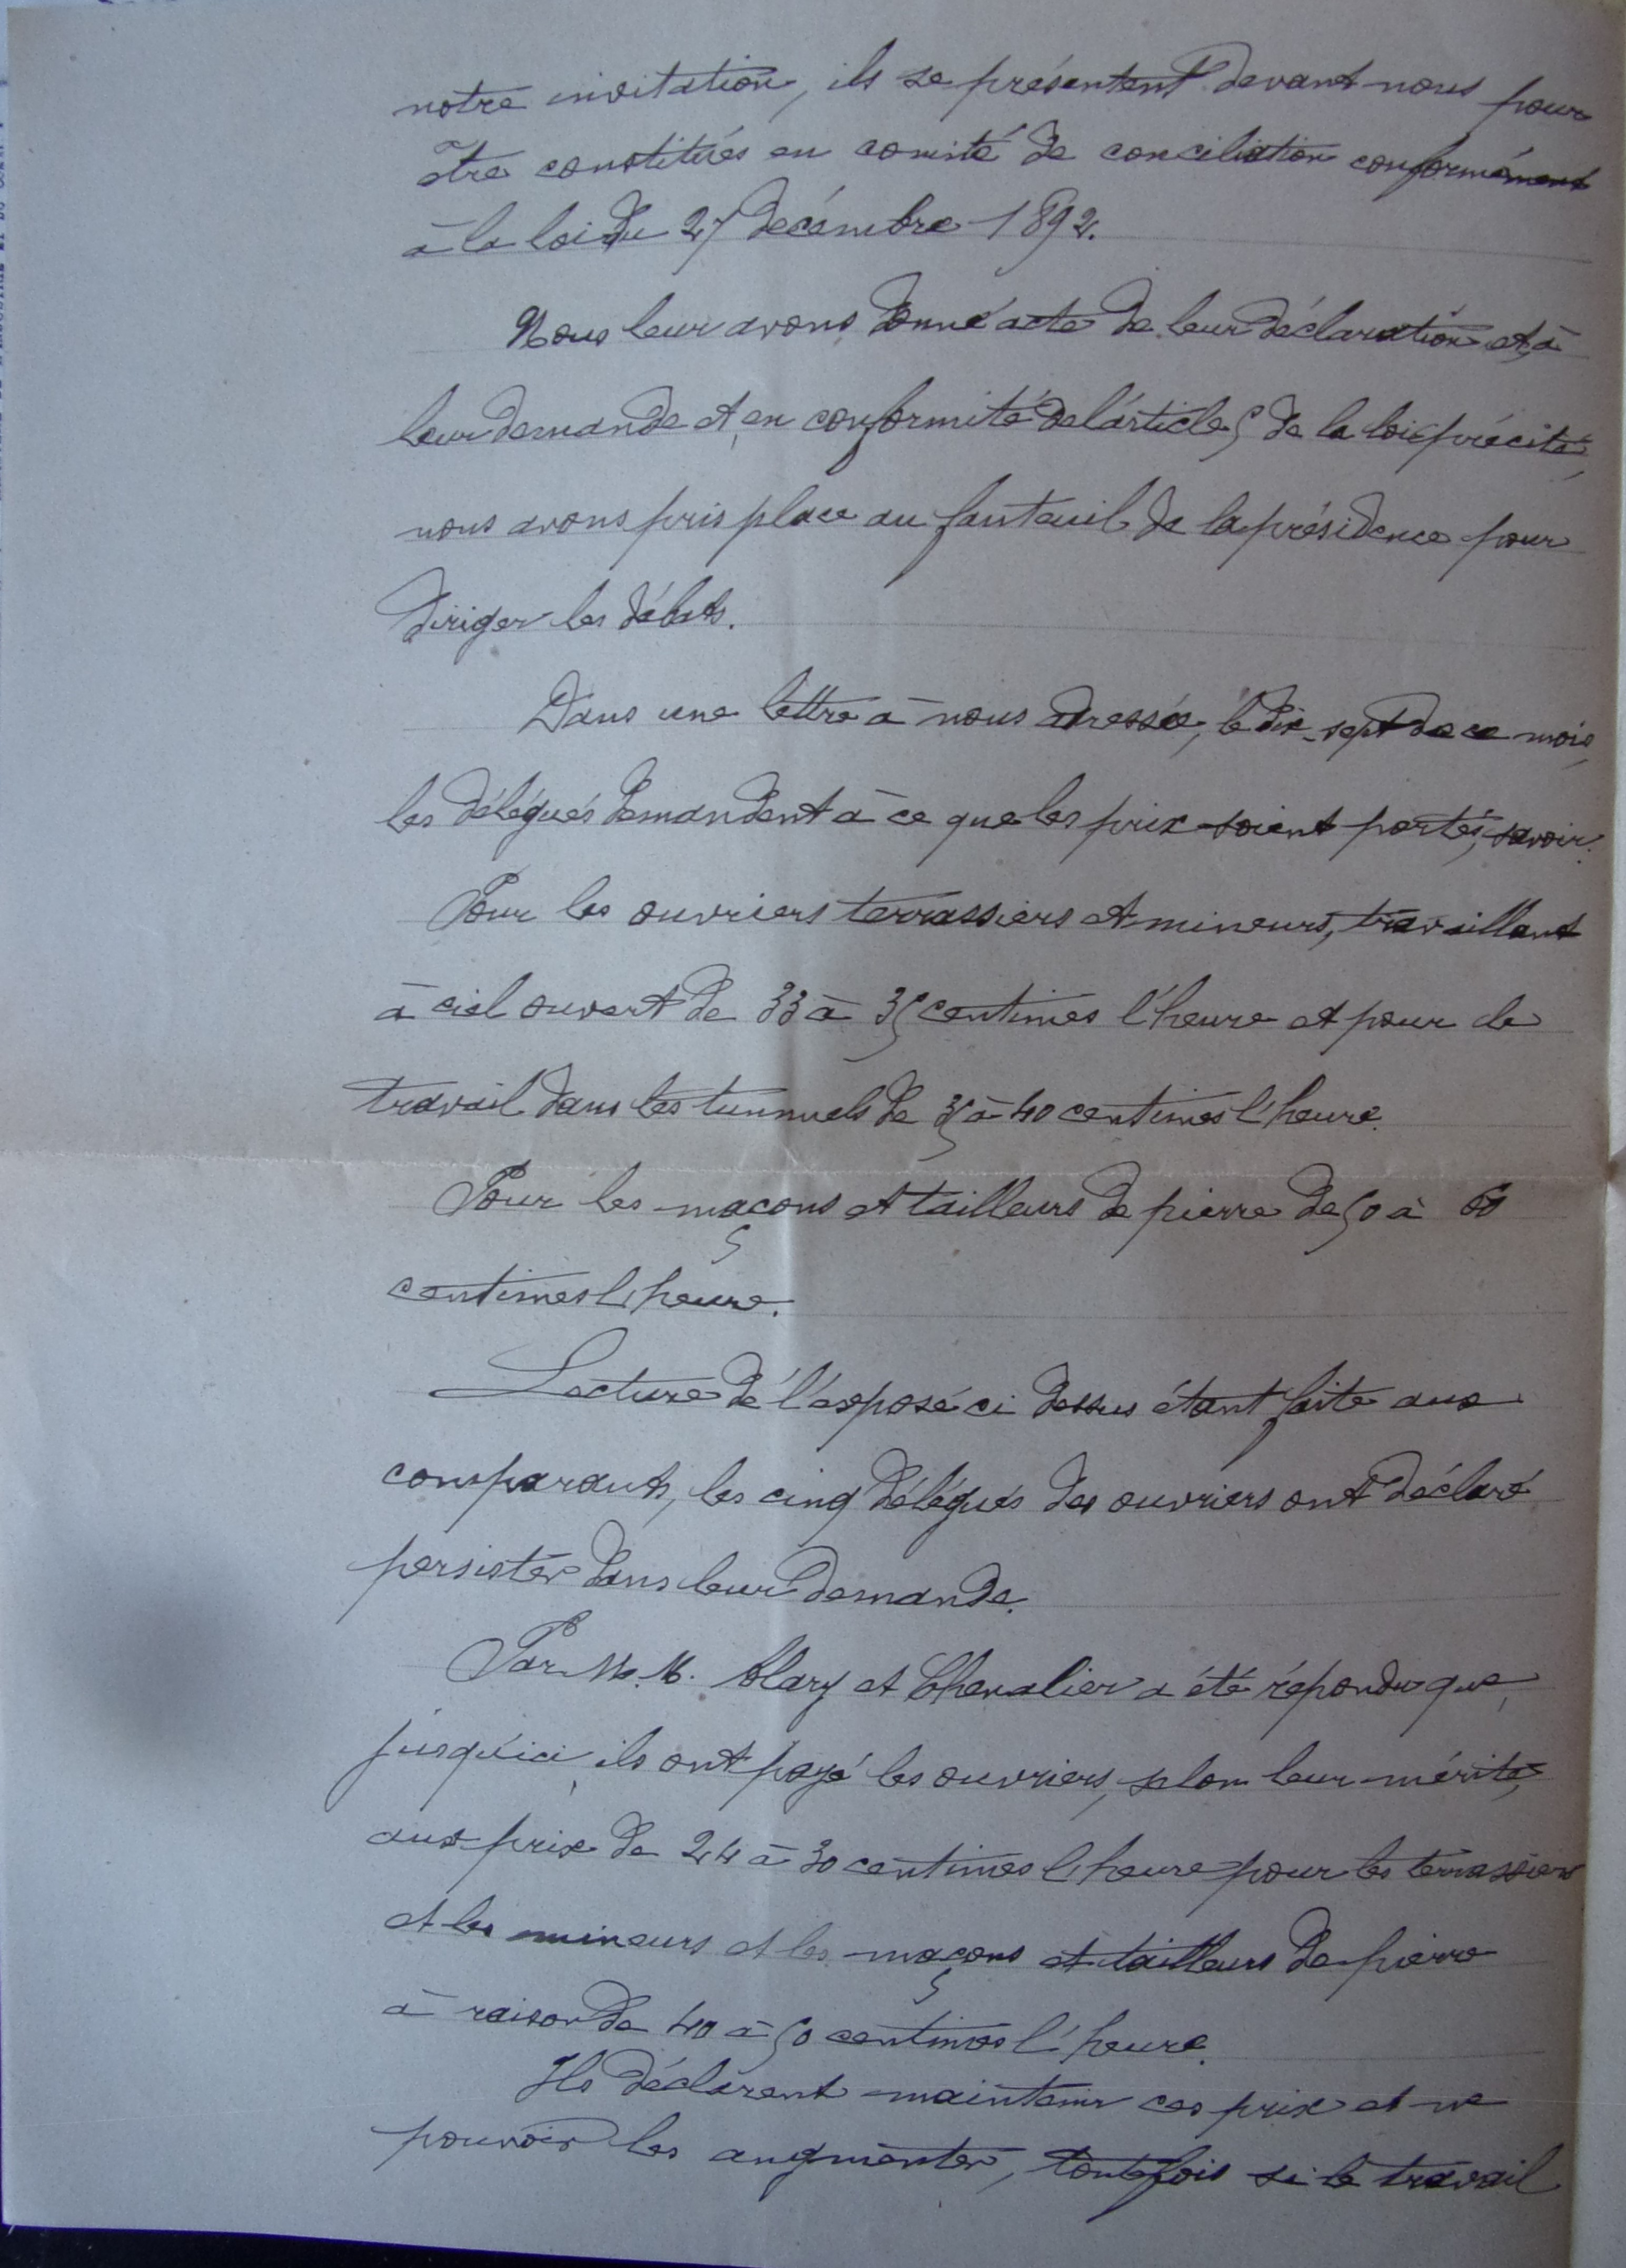 notre invitation, ils se présentent devant nous pour
être constitués en comité de conciliation conformément
à la loi du 27 décembre 1892.
Nous leur avons donné acte de leur déclaration et, à
leur demande et en conformité de l'article 5 de la loi précitée,
nous avons pris place au fauteuil de la présidence pour
diriger les débats.
Dans une lettre à nous adressée, le dix-sept de ce mois,
les délégués demandent à ce que les prix soient portés, savoir:
Pour les ouvriers terrassiers et mineurs, travaillant
à ciel ouvert de 33 à 35 centimes l'heure et pour le
travail dans les tunnels de 35 à 40 centimes l'heure.
Pour les maçons et tailleurs de pierre de 50 à 60
centimes l'heure.
Lecture de l'exposé ci dessus étant faite aux
comparants, les cinq délégués des ouvriers ont déclaré
persister dans leur demande.
Par M.M. et Chevalier a été répondu que,
jusqu'ici, ils ont payé les ouvriers, selon leur mérite,
aux prix de 24 à 30 centimes l'heure pour les terrassiers
et les mineurs et les maçons et tailleurs de pierre
à raison de 40 à 50 centimes l'heure.
Ils déclarent maintenir ces prix et ne
pouvoir les augmenter, toutefois si le travail